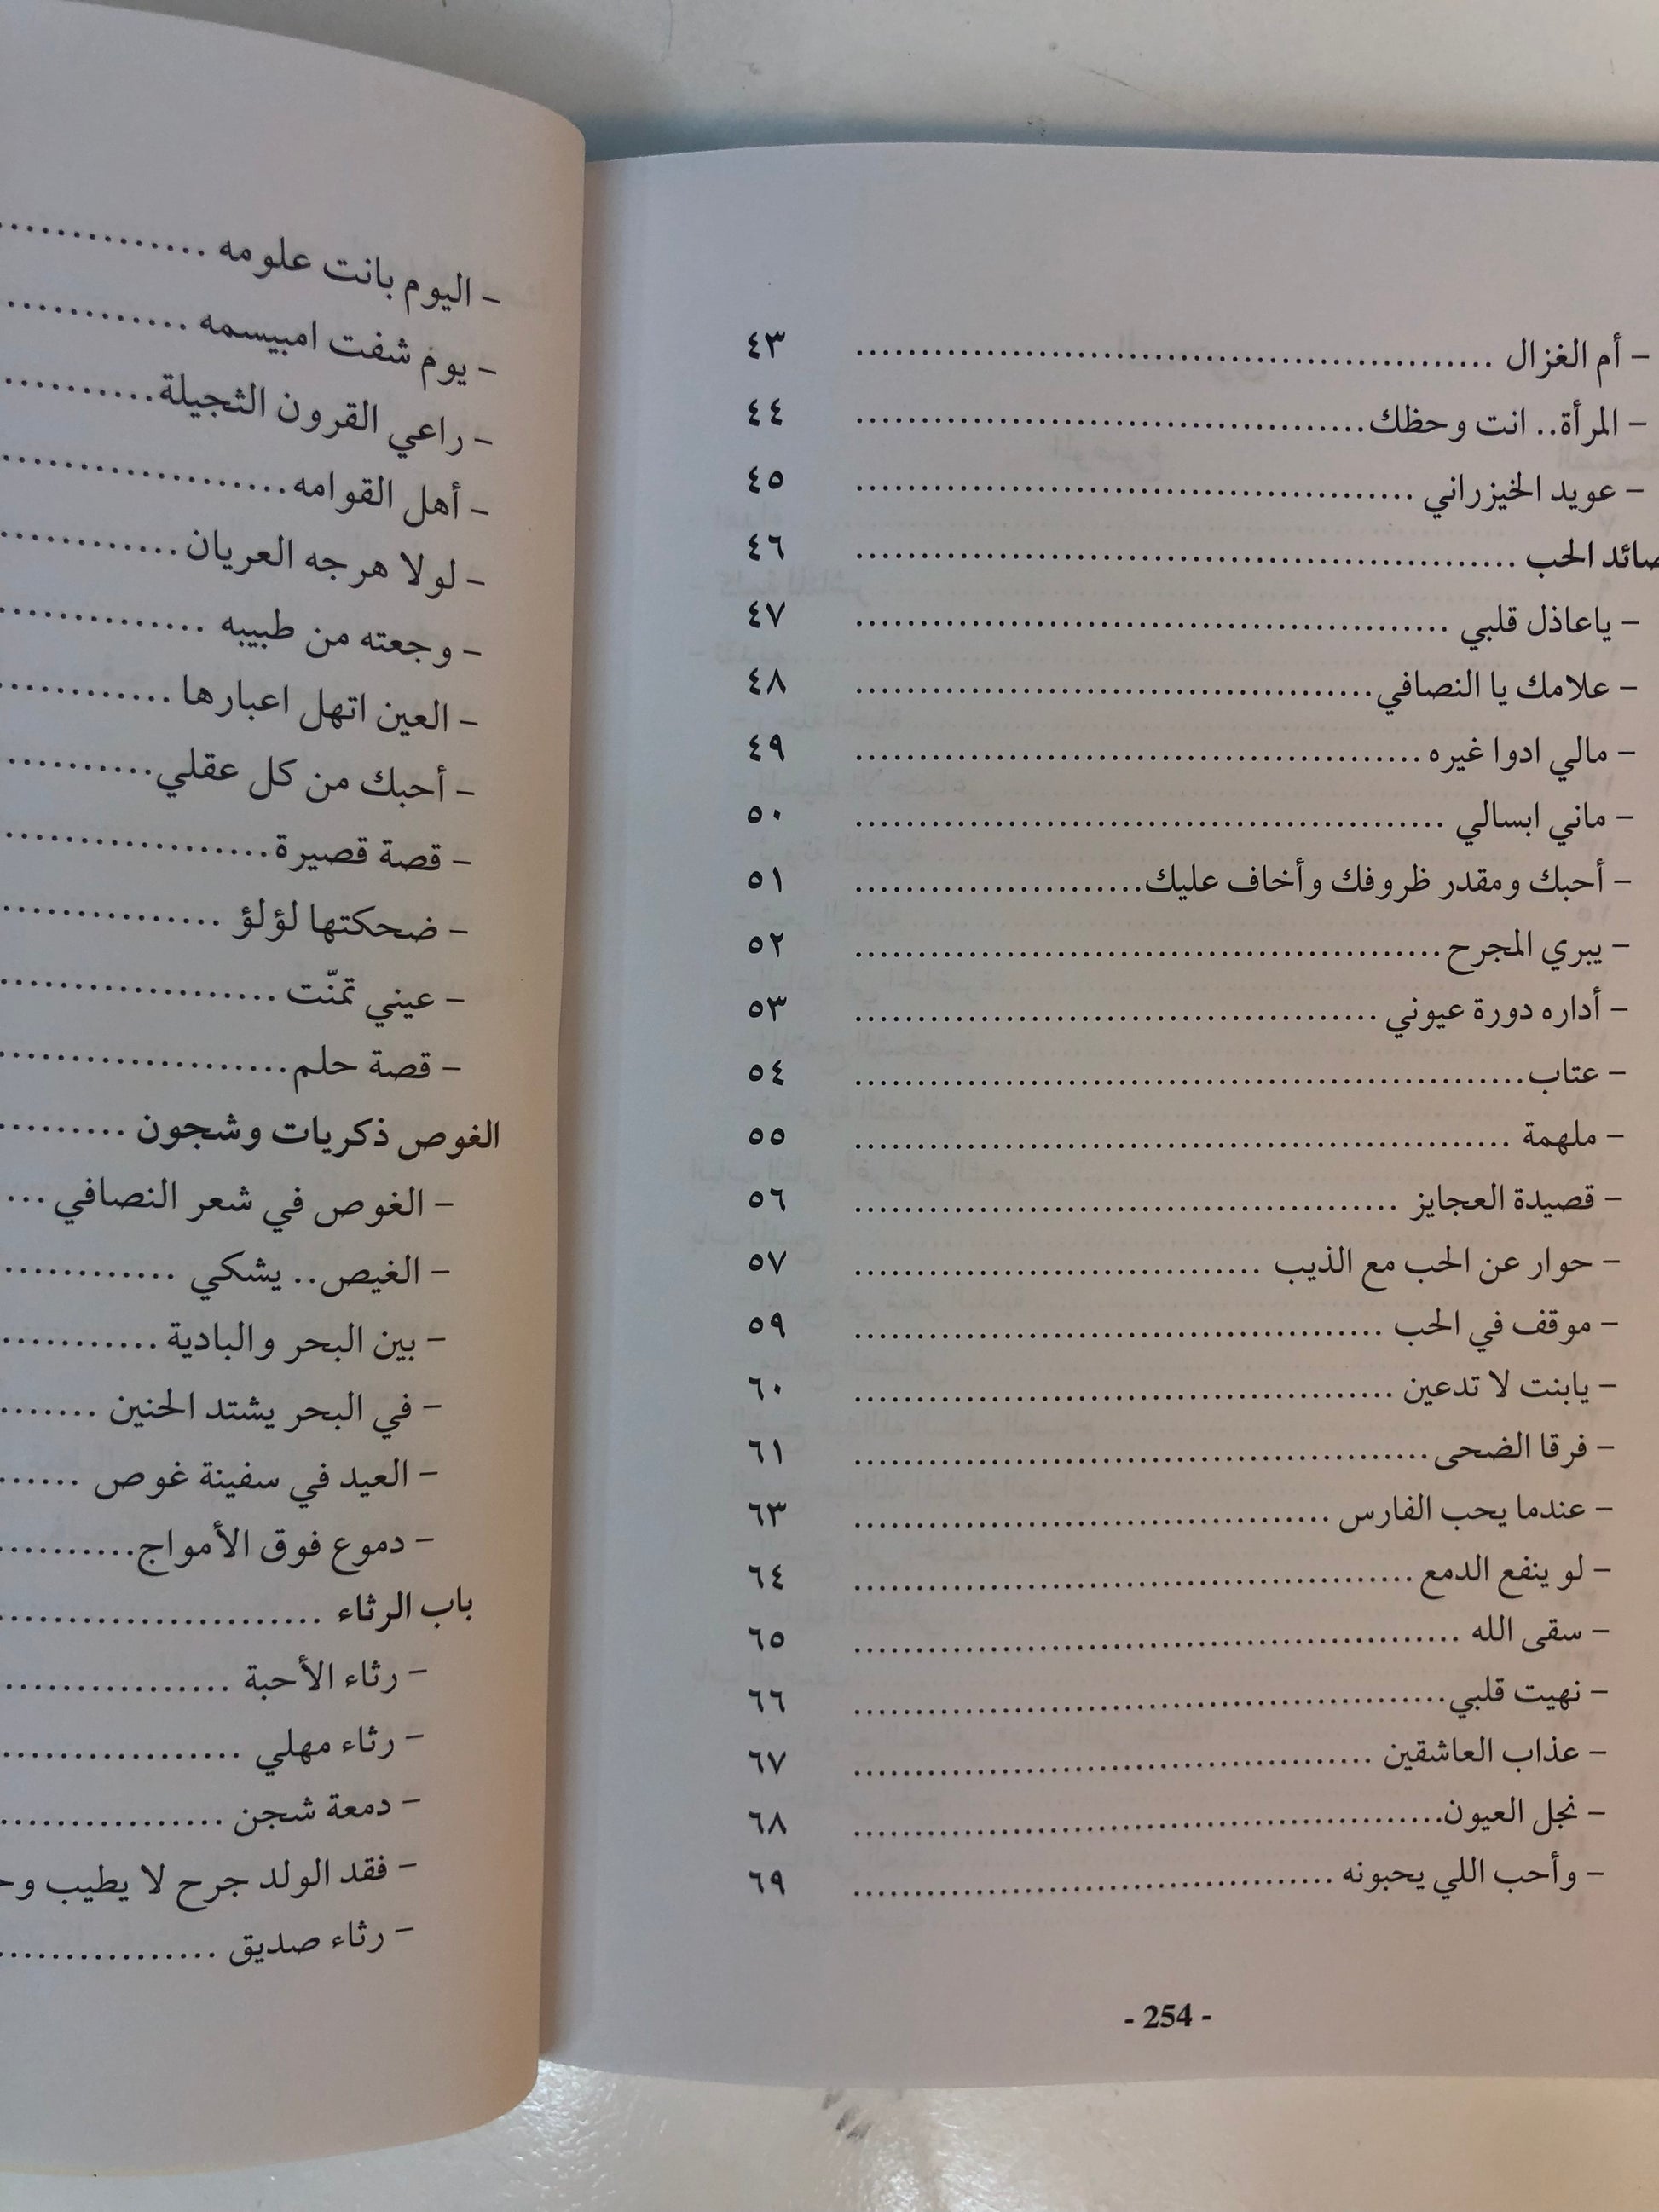 - أم الغزال ........ ٤٣
- المرأة.. انت وحظك ........ ٤٤
- عويد الخيزراني ........ ٤٥
صائد الحب ........ ٤٦
- ياعاذل قلبي ........ ٤٧
- علامك يا النصافي ........ ٤٨
- مالي ادوا غيره ........ ٤٩
- ماني ابسالي ........ ٥٠
- أحبك ومقدر ظروفك وأخاف عليك ........ ٥١
- يبري المجرح ........ ٥٢
- أداره دورة عيوني ........ ٥٣
- عتاب ........ ٥٤
- ملهمة ........ ٥٥
- قصيدة العجايز ........ ٥٦
- حوار عن الحب مع الذيب ........ ٥٧
- موقف في الحب ........ ٥٩
- يابنت لا تدعين ........ ٦٠
- فرقا الضحى ........ ٦١
- عندما يحب الفارس ........ ٦٣
- لو ينفع الدمع ........ ٦٤
- سقى الله ........ ٦٥
- نهيت قلبي ........ ٦٦
- عذاب العاشقين ........ ٦٧
- نجل العيون ........ ٦٨
- وأحب اللي يحبونه ........ ٦٩
- 254 -
- اليوم بانت علومه ........
- يوم شفت امبيسمه ........
- راعي القرون الثجيلة ........
- أهل القوامه ........
- لولا هرجه العريان ........
- وجعته من طبيبه ........
- العين اتهل اعبارها ........
- أحبك من كل عقلي ........
- قصة قصيرة ........
- ضحكتها لؤلؤ ........
- عيني تمنّت ........
- قصة حلم ........
الغوص ذكريات وشجون ........
- الغوص في شعر النصافي ...
- الغيص.. يشكي ........
- بين البحر والبادية ........
- في البحر يشتد الحنين ........
- العيد في سفينة غوص ........
- دموع فوق الأمواج ........
باب الرثاء ........
- رثاء الأحبة ........
- رثاء مهلي ........
- دمعة شجن ........
- فقد الولد جرح لا يطيب
- رثاء صديق ........